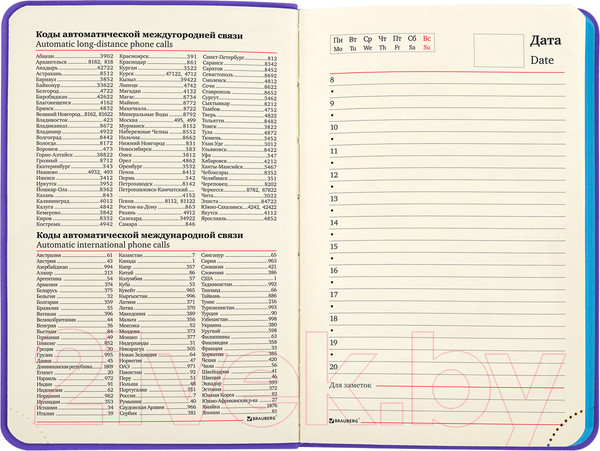 Коды автоматической междугородней связи
Automatic long-distance phone calls
Абакан 3902
Архангельск 8182, 818
Анадырь 42722
Астрахань 8512
Барнаул 3852
Байконур 33622
Белгород 4722
Биробиджан 42622
Благовещенск 4162
Брянск 4832
Великий Новгород
Владивосток 423
Владикавказ 8672
Владимир 4922
Волгоград 8442
Вологда 8172
Воронеж 473
Горно-Алтайск 38822
Грозный 8712
Екатеринбург 343
Иваново 4932, 493
Ижевск 3412
Иркутск 3952
Йошкар-Ола 8362
Казань 843
Калининград 4012
Калуга 4842
Кемерово 3842
Киров 8332
Кострома 4942
Красноярск 391
Краснодар 861
Курган 3522
Курск 47122, 4712
Кызыл 39422
Липецк 4742
Магадан 4132
Магас 8734
Майкоп 8772
Махачкала 8722
Минеральные Воды 8792
Москва 495, 499
Мурманск 8152
Набережные Челны 8552
Нальчик 8662
Нижний Новгород 831
Новосибирск 383
Омск 3812
Орел 4862
Оренбург 3532
Пенза 8412
Пермь 342
Петрозаводск 8142
Петропавловск-Камчатский
Псков 8112, 81122
Ростов-на-Дону 863
Рязань 4912
Салехард 34922
Самара 846
Санкт-Петербург 812
Саранск 8342
Саратов 8452
Севастополь 8692
Смоленск 4812
Сочи 8622
Ставрополь 8652
Сургут 3462
Сыктывкар 8212
Тамбов 4752
Тверь 4822
Тольятти 8482
Томск 3822
Тула 4872
Тюмень 3452
Улан-Удэ 3012
Ульяновск 8422
Уфа 347
Хабаровск 4212
Ханты-Мансийск 3467
Чебоксары 8352
Челябинск 351
Череповец 8202
Черкесск 8782, 87822
Чита 3022
Элиста 84722
Южно-Сахалинск 4242, 42422
Якутск 4112
Ярославль 4852
Коды автоматической международной связи
Automatic international phone calls
Австралия 61
Австрия 43
Азербайджан 994
Алжир 213
Аргентина 54
Армения 374
Беларусь 375
Бельгия 32
Болгария 359
Бразилия 55
Ватикан 396
Великобритания 44
Венгрия 36
Вьетнам 84
Германия 49
Гонконг 852
Греция 30
Грузия 995
Дания 45
Доминиканская республика 1809
Египет 20
Израиль 972
Индия 91
Индонезия 62
Иордания 962
Ирландия 353
Испания 34
Италия 39
Казахстан 7
Канада 1
Кипр 357
Китай 86
Колумбия 57
Куба 53
Кувейт 965
Кыргызстан 996
Латвия 371
Литва 370
Македония 389
Мальта 356
Мексика 52
Молдова 373
Монако 377
Нидерланды 31
Никарагуа 505
Новая Зеландия 64
Норвегия 47
ОАЭ 971
Пакистан 92
Перу 51
Польша 48
Португалия 351
Россия 7
Румыния 40
Саудовская Аравия 966
Сербия 381
Сингапур 65
Сирия 963
Словакия 421
Словения 386
США 1
Таджикистан 992
Таиланд 66
Тайвань 886
Тунис 216
Туркменистан 993
Турция 90
Узбекистан 998
Украина 380
Уругвай 598
Филиппины 63
Финляндия 358
Франция 33
Хорватия 385
Чехия 420
Чили 56
Швейцария 41
Швеция 46
Эквадор 593
Эстония 372
Южная Корея 82
Южно-Африканская р-ка 27
Ямайка 1876
Япония 81
BRAUBERG
Пн Вт Ср Чт Пт Сб Вс
Mo Tu We Th Fr Sa Su
Дата
Date
8
9
10
11
12
13
14
15
16
17
18
19
20
Для заметок
BRAUBERG
21vek.by